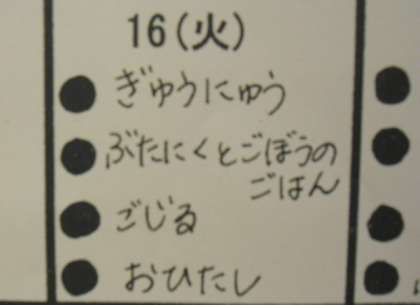 16(火)
● ぎゅうにゅう
● ぶたにくとごぼうの
ごはん
● ごじる
● おひたし